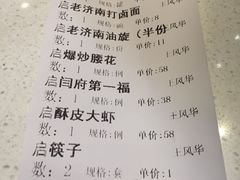 启老济南打卤面 王凤华
数:1 规格:份 单价:8
启老济南油旋(半份
数:1 规格:份 单价:11 王凤华
启爆炒腰花
数:1 规格:例 单价:58 王凤华
启闫府第一福
数:1 规格:例 单价:38 王凤华
启酥皮大虾
数:1 规格:例 单价:58 王凤华
启筷子
数:2 规格:套 单价:1 王凤华